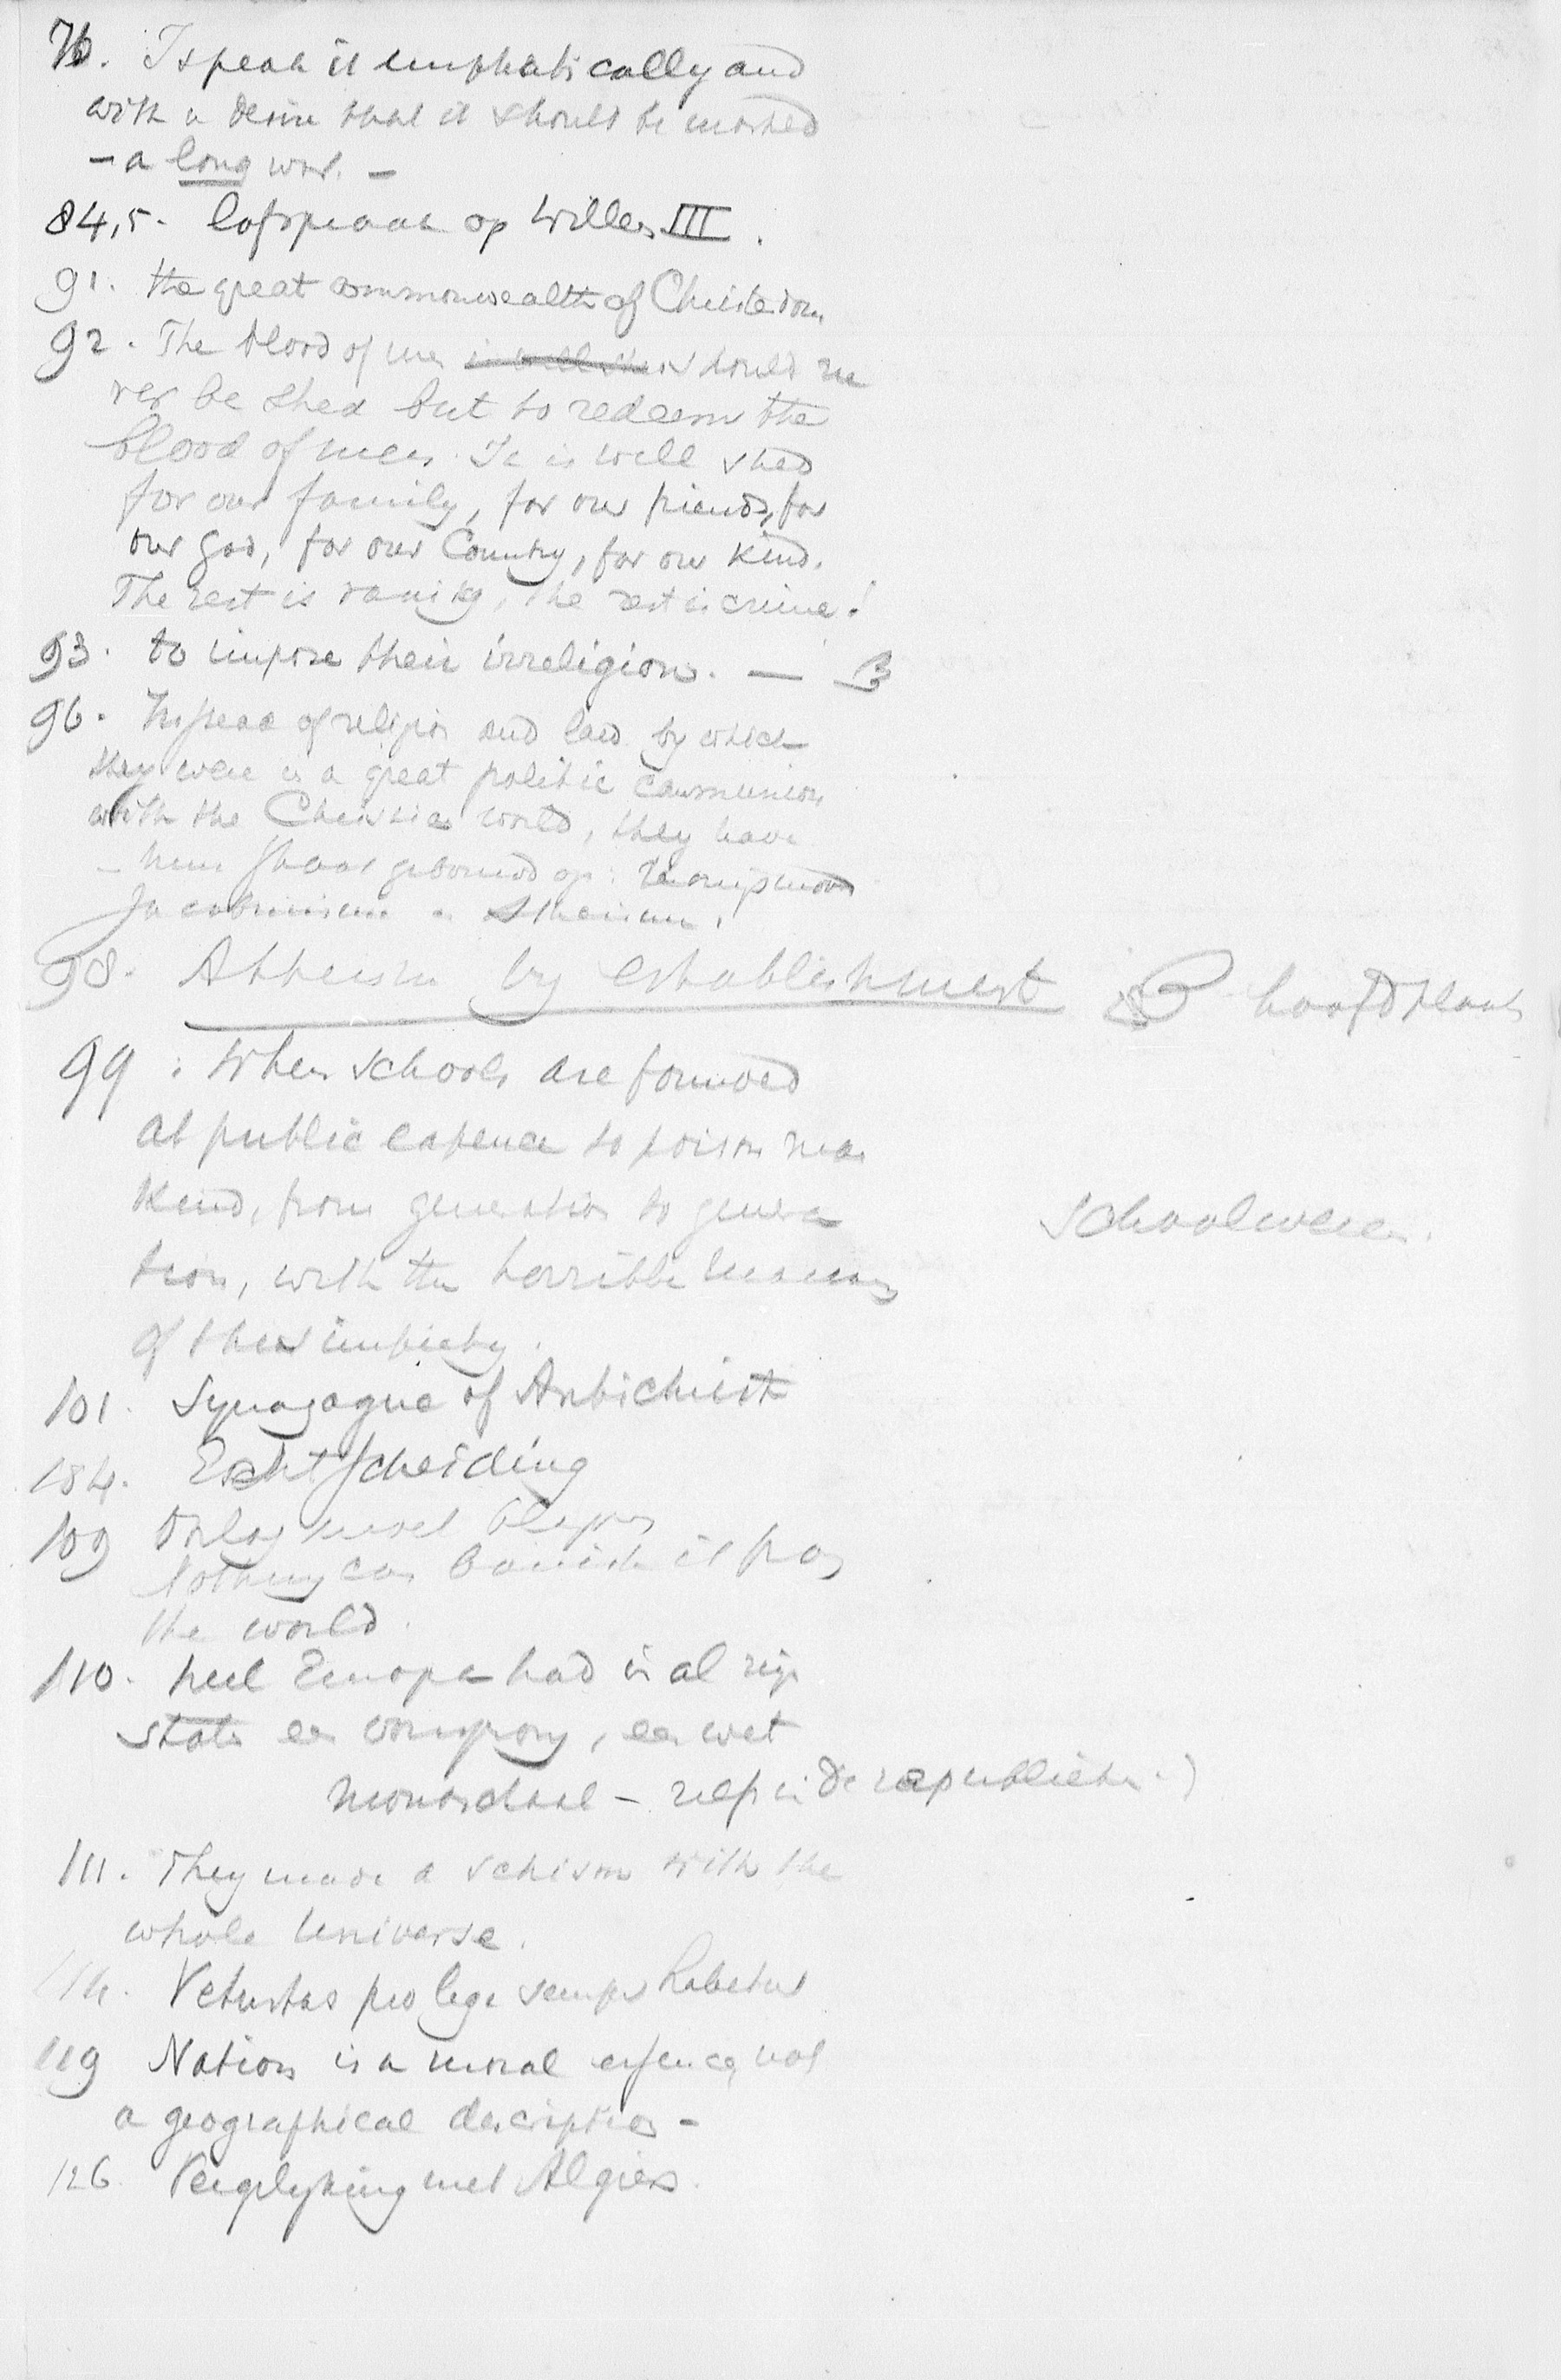 76. I speak it emphatically and
with a desire that it should be marked
– a long war. –
84,5. Lofspraak op Willem III.
91. the great commonwealth of Christendom
92. The blood of men should ne
ver be shed but to redeem the
blood of men. It is well shed
for our family, for our friends, for
our god, for our Country, for our kind.
The rest is vanity, the rest is crime!
93. to impose their irreligion. —
96. Instead of religion and law by which
they were in a great politic communion
with the Christian world, they have
– hun staat gebouwd op:
Jacobinism Atheism.
98. Atheism by establishment hoofdplaats
99. When schools are founded
at public expence to poison man
kind, from generation to genera
tion, with the horrible maxims
of this impiety.
schoolwezen.
101. Synagogue of Antichrist
104. Echtscheiding
109 Oorlog moet
Nothing can banish it from
the world.
110. heel Europa had in al zijn
staten een oorsprong, een wet
monarchaal – zelfs in de republieken.)
111. They made a schism with the
whole universe.
Vetustas pro lege semper habetur
119 Nation is a moral essence, not
a geographical description –
126. Vergelyking met Algiers.